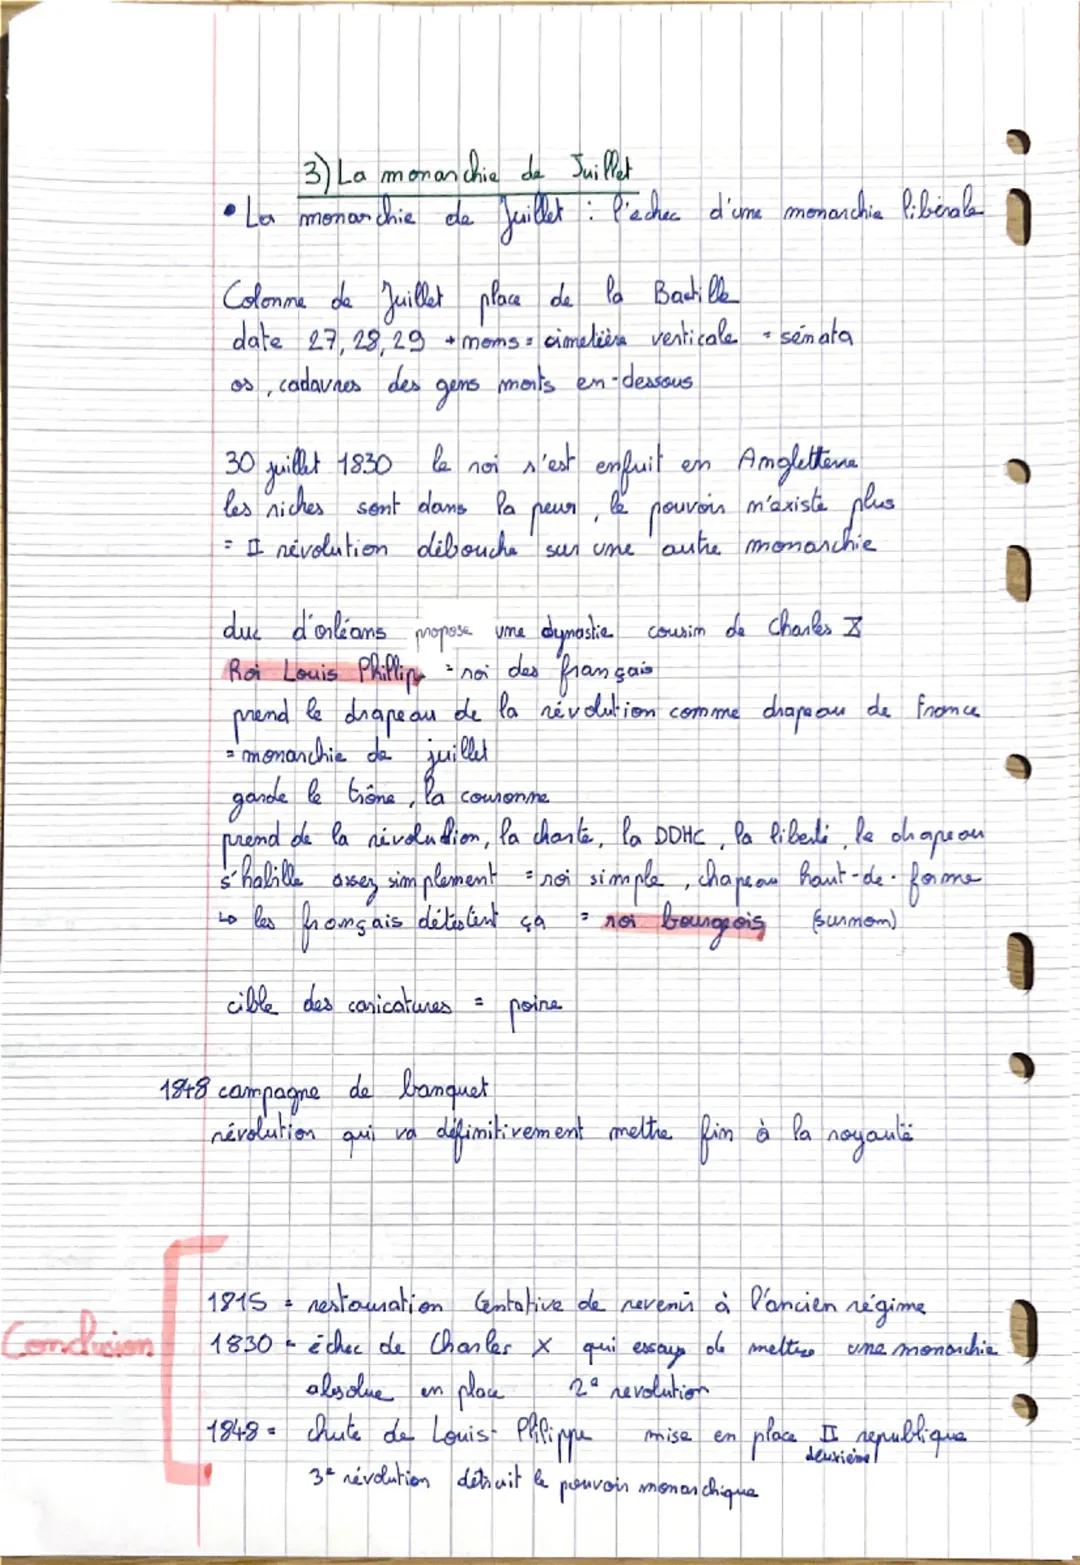 3) La monarchie de Juillet
• La monarchie de Juillet : l'échec d'une monarchie libérale
Colonne de Juillet place de la Bastille
date 27, 28, 29 + noms = cimetière verticale = sénata
os, cadavres des gens morts en-dessous
30 juillet 1830 le roi s'est enfuit en Angletterre
les riches sont dans la peur, le pouvoir n'existe plus
= II révolution débouche sur une autre monarchie
duc d'orléans propose une dynastie cousin de Charles X
Roi Louis Phillip = roi des français
prend le drapeau de la révolution comme drapeau de France
= monarchie de juillet
garde le trône, la couronne
prend de la révolution, la charte, la DDHC, la liberté, le drapeau
s'habille assez simplement = roi simple, chapeau haut-de-forme
↳ les français détestent ça = roi bourgeois (surnom)
cible des caricatures = poire
1848 campagne de banquet
révolution qui va définitivement mettre fin à la royauté
Conclusion
1815 = restauration tentative de revenir à l'ancien régime
1830 = échec de Charles X qui essaye de mettre une monarchie
absolue en place 2e révolution
1848 = chute de Louis-Philippe mise en place II republique
deuxième
3e révolution détruit le pouvoir monarchique